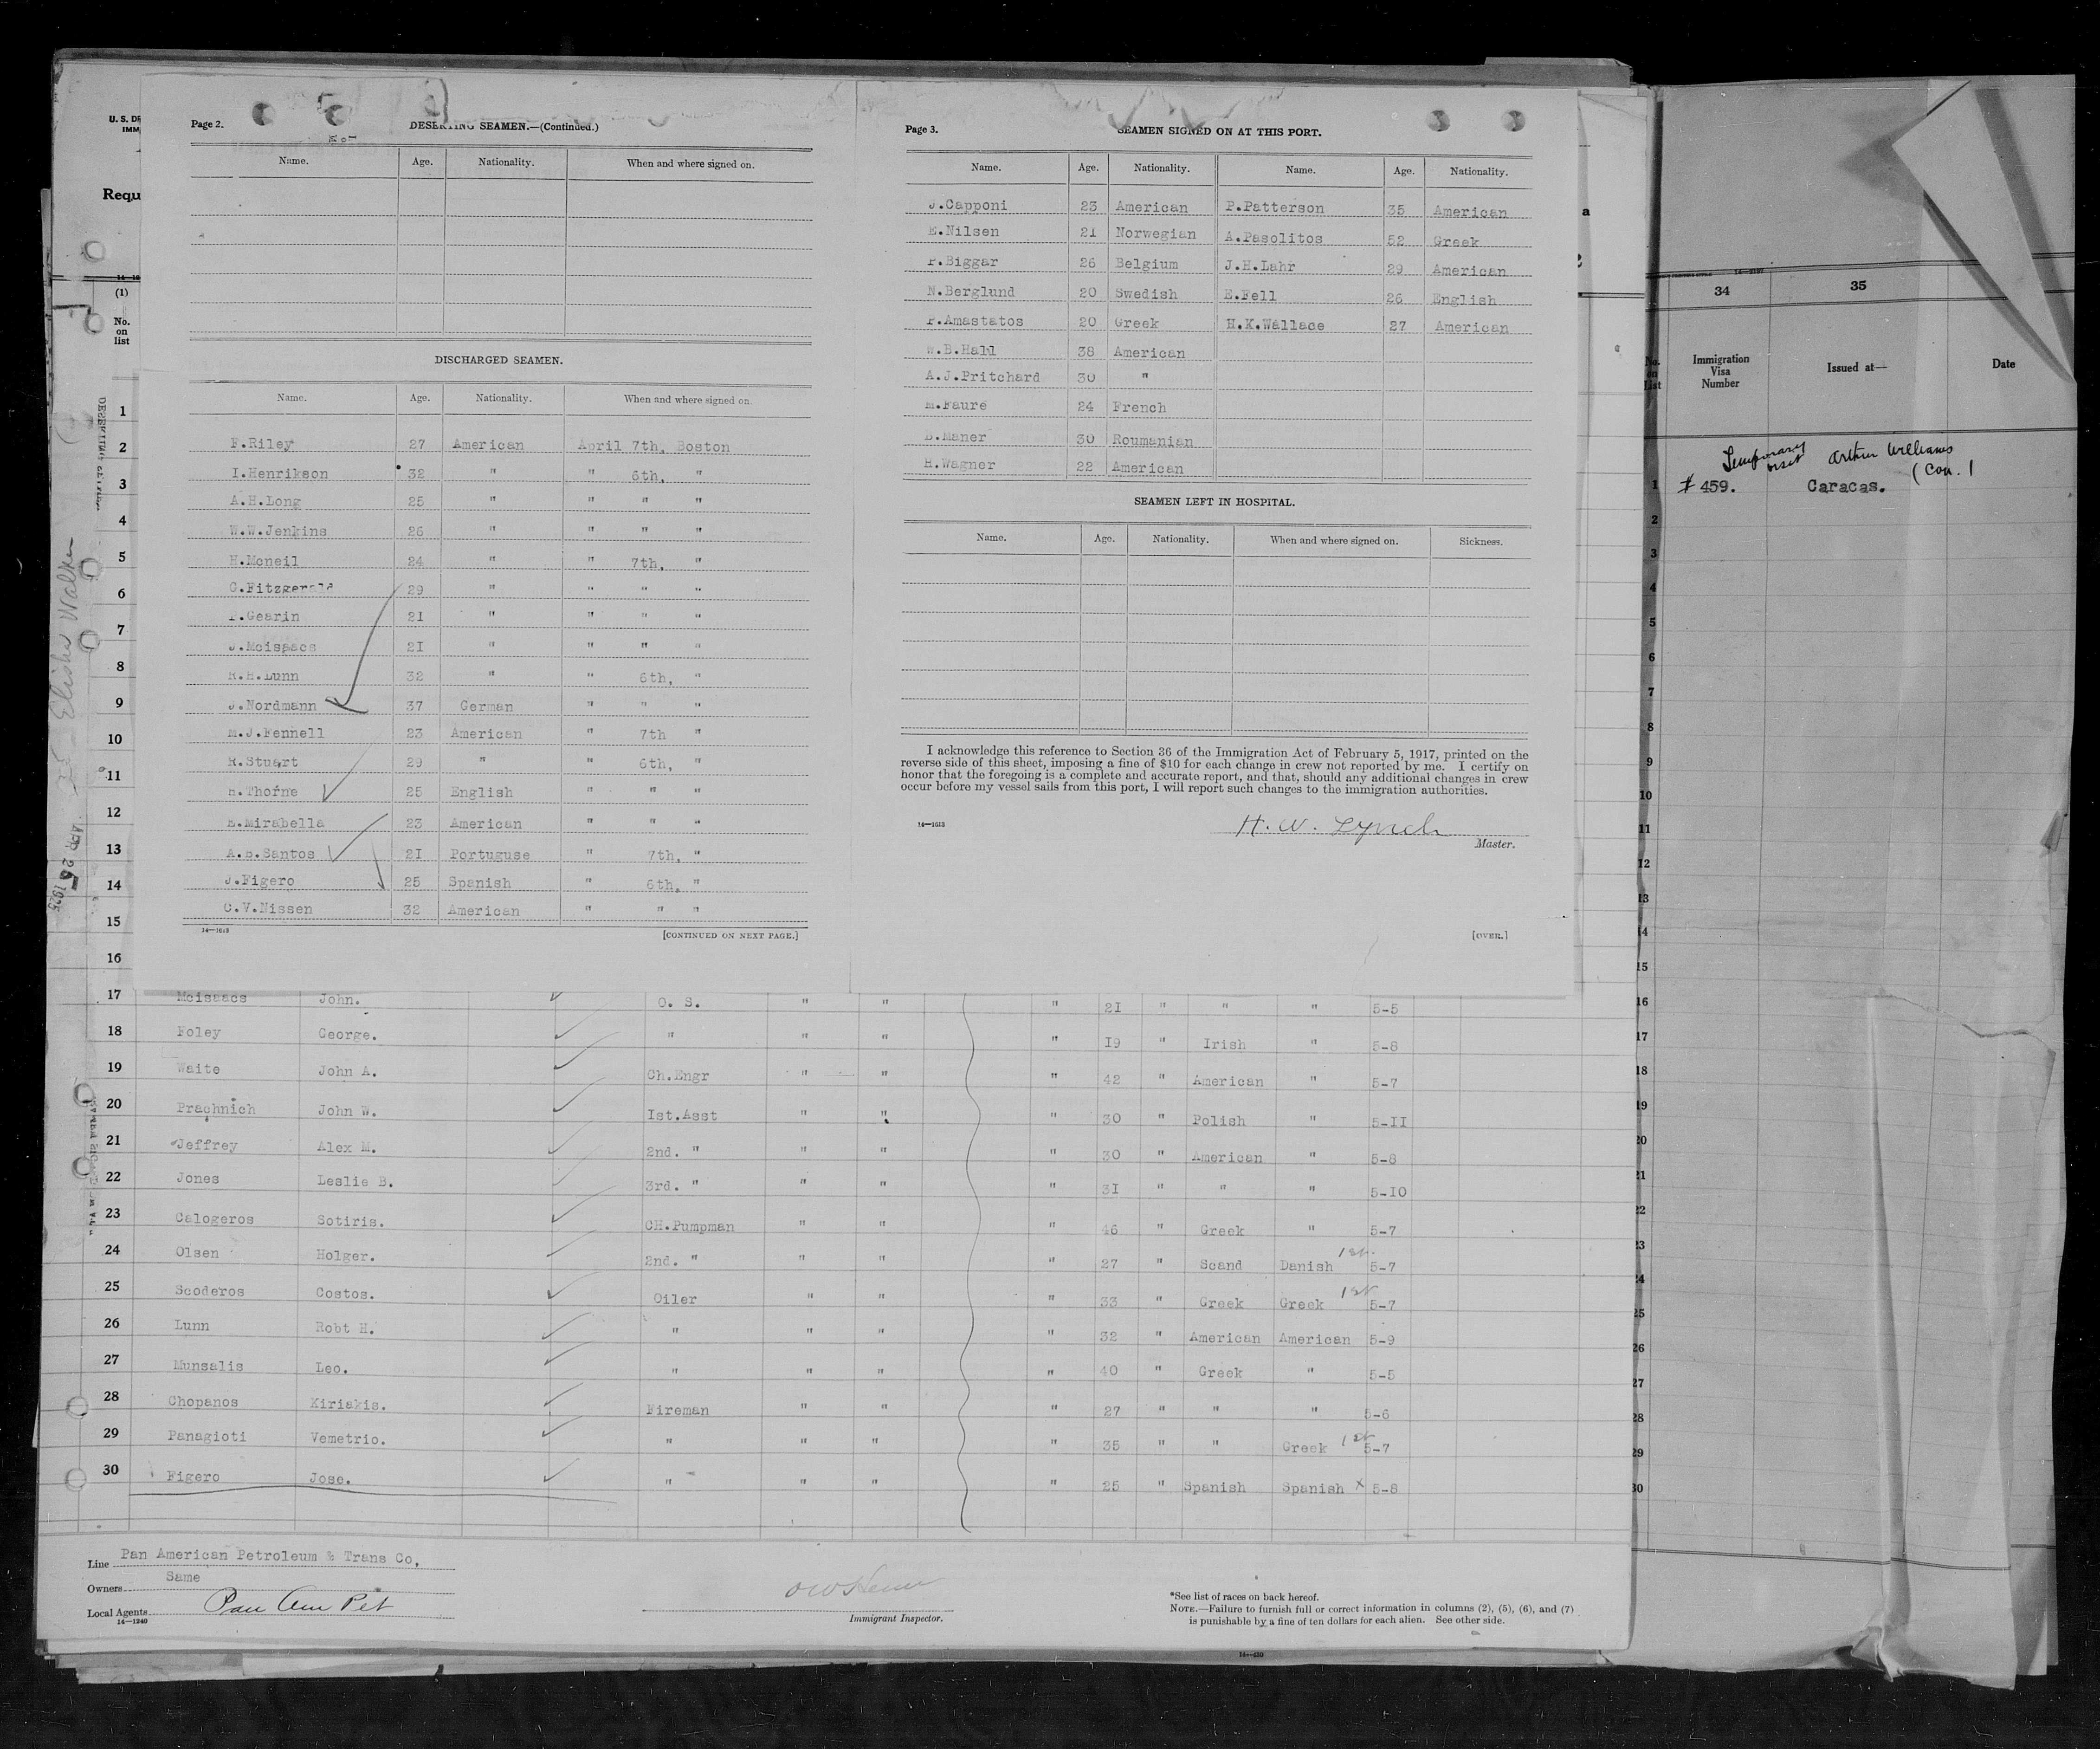 Page 2.
DESERTING SEAMEN.—(Continued.)
Name. Age. Nationality. When and where signed on.
DISCHARGED SEAMEN.
Name. Age. Nationality. When and where signed on.
F.Riley 27 American April 7th, Boston
I.Henrikson 32 " " 6th, "
A.H.Long 25 " " " "
W.W.Jenkins 26 " " " "
H.Mcneil 24 " " 7th, "
G.Fitzgerald 29 " " " "
P.Gearin 21 " " " "
J.Mcisaacs 2I " " " "
R.H.Lunn 32 " " 6th, "
J.Nordmann 37 German " " "
M.J.Fennell 23 American " 7th "
R.Stuart 29 " " 6th, "
H.Thorne 25 English " " "
E.Mirabella 23 American " " "
A.S.Santos 2I Portuguse " 7th, "
J.Figero 25 Spanish " 6th, "
C.V.Nissen 32 American " " "
14—1613 [CONTINUED ON NEXT PAGE.]
Page 3.
SEAMEN SIGNED ON AT THIS PORT.
Name. Age. Nationality. Name. Age. Nationality.
J.Capponi 23 American P.Patterson 35 American
E.Nilsen 21 Norwegian A.Pasolitos 52 Greek
P.Biggar 26 Belgium J.H.Lahr 29 American
N.Berglund 20 Swedish E.Fell 26 English
P.Amastatos 20 Greek H.K.Wallace 27 American
W.B.Hall 38 American
A.J.Pritchard 30 "
M.Faure 24 French
D.Maner 30 Roumanian
H.Wagner 22 American
SEAMEN LEFT IN HOSPITAL.
Name. Age. Nationality. When and where signed on. Sickness.
I acknowledge this reference to Section 36 of the Immigration Act of February 5, 1917, printed on the
reverse side of this sheet, imposing a fine of $10 for each change in crew not reported by me. I certify on
honor that the foregoing is a complete and accurate report, and that, should any additional changes in crew
occur before my vessel sails from this port, I will report such changes to the immigration authorities.
14—1613
H. W. Lynch
Master.
[OVER.]
U. S. DE
IMM
Requ
(1)
No.
on
list
1
2
3
4
5
6
7
8
9
10
11
12
13
14
15
16
Elisha Walker
APR 25 1925
17 Mcisaacs John. O. S. " " " 2I " " " 5-5
18 Foley George. " " " " I9 " Irish " 5-8
19 Waite John A. Ch.Engr " " " 42 " American " 5-7
20 Prachnich John W. Ist.Asst " " " 30 " Polish " 5-II
21 Jeffrey Alex M. 2nd. " " " " 30 " American " 5-8
22 Jones Leslie B. 3rd. " " " " 3I " " " 5-I0
23 Calogeros Sotiris. CH.Pumpman " " " 46 " Greek " 5-7
24 Olsen Holger. 2nd. " " " " 27 " Scand Danish 1st 5-7
25 Scoderos Costos. Oiler " " " 33 " Greek Greek 1st 5-7
26 Lunn Robt H. " " " " 32 " American American 5-9
27 Munsalis Leo. " " " " 40 " Greek " 5-5
28 Chopanos Kiriakis. Fireman " " " 27 " " " 5-6
29 Panagioti Vemetrio. " " " " 35 " " Greek 1st 5-7
30 Figero Jose. " " " " 25 " Spanish Spanish x 5-8
Line Pan American Petroleum & Trans Co,
Owners Same
Local Agents Pan Am Pet
14—1240
Immigrant Inspector.
*See list of races on back hereof.
NOTE.—Failure to furnish full or correct information in columns (2), (5), (6), and (7)
is punishable by a fine of ten dollars for each alien. See other side.
34 35
No. on List Immigration Visa Number Issued at— Date
Temporary visit Arthur Williams
(Con.)
1 # 459. Caracas.
2
3
4
5
6
7
8
9
10
11
12
13
14
15
16
17
18
19
20
21
22
23
24
25
26
27
28
29
30